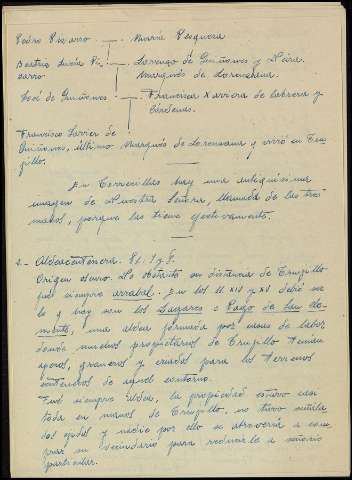 Pedro Pizarro — María Pesquera
Beatriz Lucía Pi- — Lorenzo de Quiñones y Neira
zarro Marqués de Lorenzana
José de Quiñones — Francisca Xaviera de Cabrera y
Cárdenas.
Francisco Javier de
Quiñones, último Marqués de Lorenzana y vivió en Tru-
jillo.
En Torrecillas hay una antiquísima
imagen de Nuestra Señora, llamada de las tres
manos, porque las tiene efectivamente.
2.- Aldeacentenera.
Origen oscuro. La distancia de Trujillo
fué siempre arrabal. En los ss. XIV y XV debió
lo q. hoy son los Lagares o Pago de San Cle-
mente, una aldea formada por casas de labor
donde muchos propietarios de Trujillo tenían
aperos, graneros y criados para los terrenos
de aquel contorno.
Fué siempre Aldea, la propiedad estuvo casi
toda en manos de Trujillo, no tuvo señala-
dos ejidos y nadie por ello se atrevería a com-
prar su vecindario para reducirle a señorío
particular.